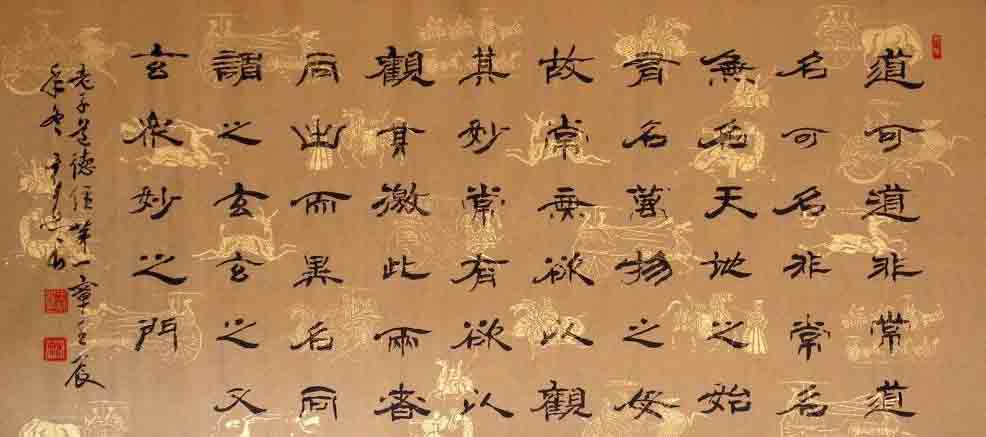 道可道非常道
名可名非常名
無名天地之始
有名萬物之母
故常無欲以觀
其妙常有欲以
觀其徼此兩者
同出而異名同
謂之玄玄之又
玄衆妙之門
老子道德經第一章壬辰
年冬